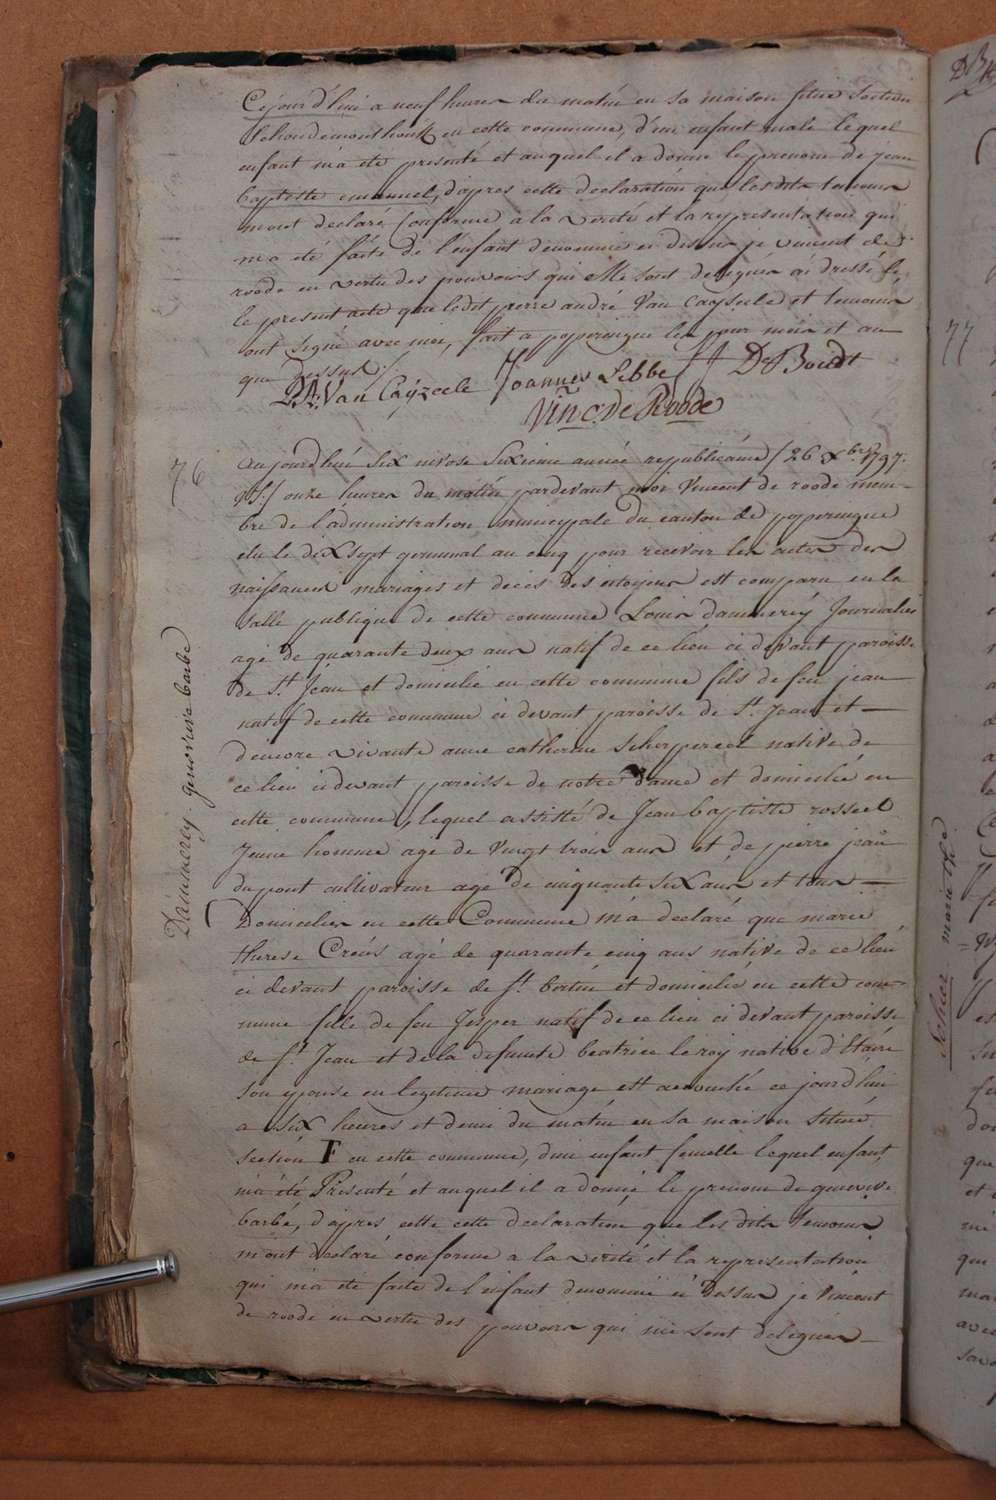 Cejourd'hui a neuf heures du matin en sa maison située section
en cette commune, d'un enfant male lequel
enfant m'a ete presenté et auquel il a donné le prenom de jean
baptiste emanuel, d'apres cette declaration que les dits temoins
m'ont declaré conforme a la verité et la representation qui
m'a été faite de l'enfant denommé ci dessus je vincent de
roode en vertu des pouvoirs qui me sont delegués ai dressé
le present acte que ledit pierre andré Van Cayseele et temoins
ont signé avec moi, fait a poperingue les jour mois et an
que dessus
P. A. Van Cayzeele Joannes Lebbe J J De Boudt
Vinc. De Roode
76
Aujourd'hui six nivose sixieme année republicaine / 26 Xbre 1797.
v:s:/ onze heures du matin pardevant moi Vincent de roode mem-
bre de l'administration municipale du canton de poperingue
elu le dix sept germinal an cinq pour recevoir les actes des
naissances mariages et decès des citoyens est comparu en la
salle publique de cette commune Louis dammerey Journalier
agé de quarante deux ans natif de ce lieu ci devant paroisse
de St. Jean et domicilié en cette commune fils de feu jean
natif de cette commune ci devant paroisse de St. Jean et
d'encore vivante anne catherine Scherpereel native de
ce lieu ci devant paroisse de notre dame et domiciliée en
cette commune, lequel assisté de Jean baptiste rosseel
Jeune homme agé de vingt trois ans et de pierre jean
dupont cultivateur agé de cinquante six ans et tous
Domiciliés en cette Commune m'a declaré que marie
therese Creûs agé de quarante cinq ans native de ce lieu
ci devant paroisse de St. bertin et domiciliée en cette com-
mune fille de feu Jesper natif de ce lieu ci devant paroisse
de St. Jean et de la defunte beatrice leroy native d'Etaire
son epouse en legitime mariage est accouchée ce jourd'hui
a six heures et demi du matin en sa maison située
section F en cette commune, d'un enfant femelle lequel enfant
m'a été Presenté et auquel il a donné le prenom de genevive
barbe, d'après cette cette declaration que les dits temoins
m'ont declaré conforme a la verité et la representation
qui m'a ete faite de l'enfant denommé ci Dessus je Vincent
de roode en vertu des pouvoirs qui me sont delegués
Dammerey genevive barbe
77